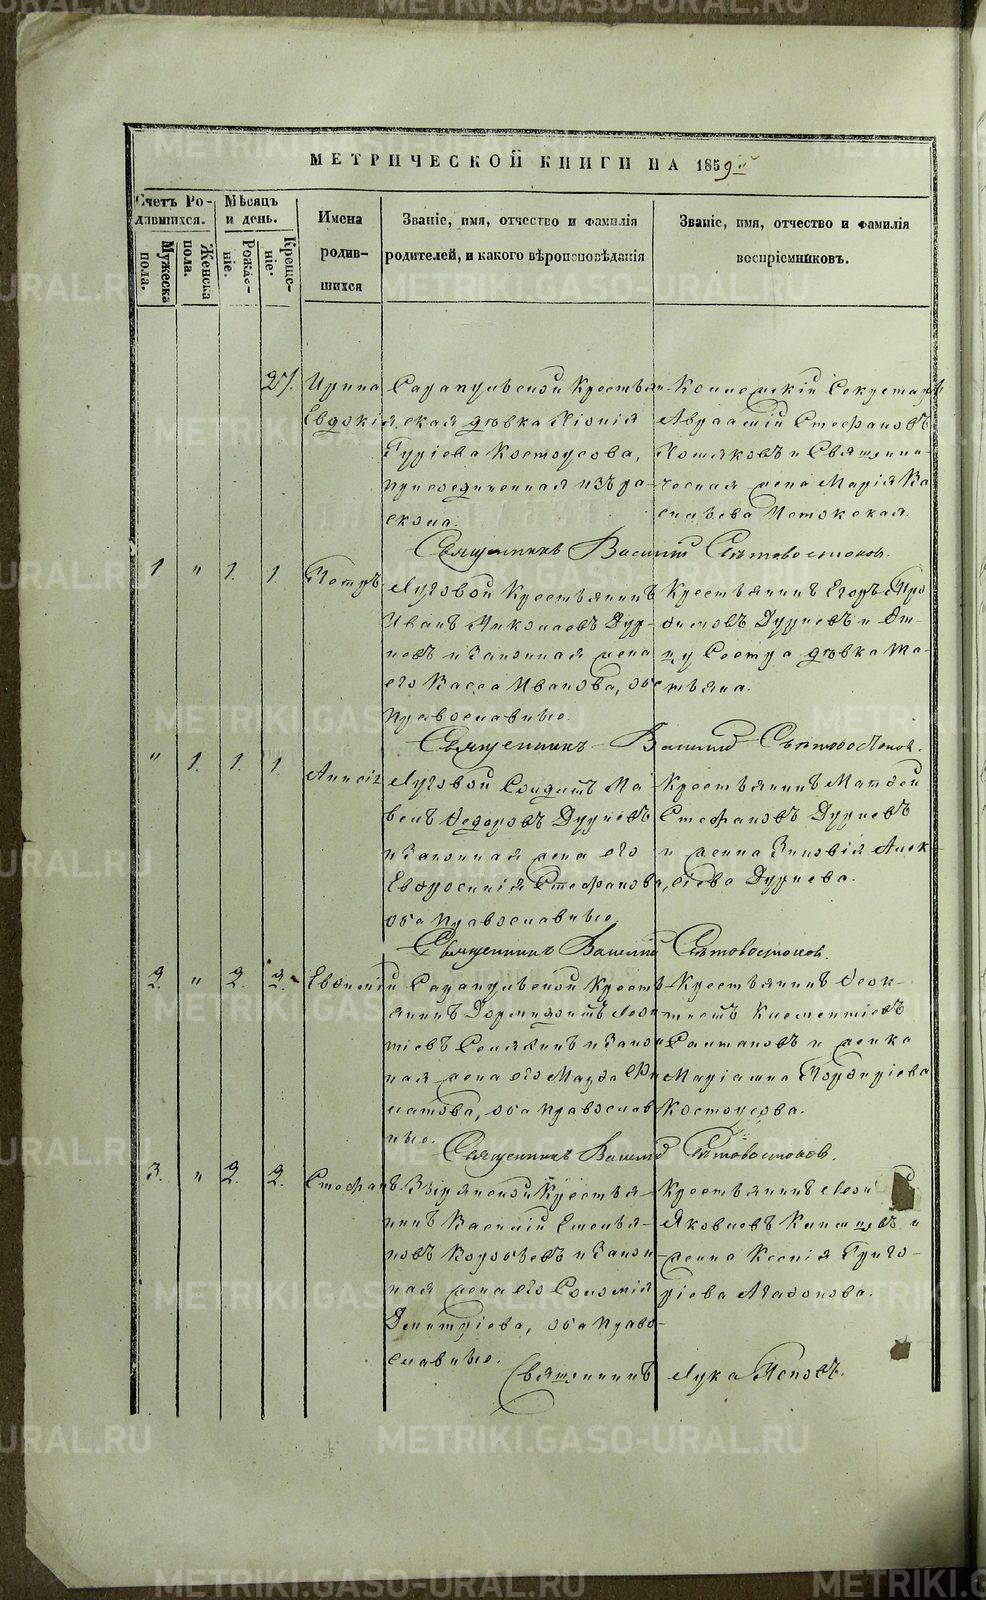 МЕТРИЧЕСКОЙ КНИГИ НА 1859й
Счетъ Родившихся.
Мужеска пола.
Женска пола.
Мѣсяцъ и день.
Рожденіе.
Крещеніе.
Имена родившихся
Званіе, имя, отчество и фамилія
родителей, и какого вѣроисповѣданія
Званіе, имя, отчество и фамилія
воспріемниковъ.
27. Ирина
Евдокія
Сарапульской Крестьян-
ская дѣвка
Гуріева Костоусова,
присоединенная изъ ра-
скола.
Коллежскій Секретарь
Авраамій Стефановъ
и Священни-
ческая жена Марія Ва
сильева
Священникъ Василій Свѣтовостоковъ.
1 " 1. 1. Петръ
Луговой Крестьянинъ
Иванъ Николаевъ Дур-
невъ и Законная жена
его Васса Иванова, оба
православные.
Крестьянинъ Егоръ Тро
фимовъ Дурневъ и От-
цу Сестра дѣвка Та-
тьяна.
Священникъ Василій Свѣтовостоковъ.
" 1. 1. 1. Анисія
Луговой Солдатъ
Федоровъ Дурневъ
и Законная жена его
Евфросинія Стефанова,
оба православные
Крестьянинъ Матфей
Стефановъ Дурневъ
и женка Зиновія Алек-
сіева Дурнева.
Священникъ Василій Свѣтовостоковъ.
2. " 2. 2. Евфимій
Сарапульской Кресть-
янинъ Дормидонтъ Леон
тіевъ и Закон
ная жена его Марфа Фи
латова, оба православ
ные.
Крестьянинъ Феок-
тистъ Климентіевъ
Салтановъ и женка
Маріамна Порфиріева
Костоусова.
Священникъ Василій Свѣтовостоковъ.
3. " 2. 2. Стефанъ.
Крестья-
нинъ Василій Емелья-
новъ Воробьевъ и Закон
ная жена его Соломія
Димитріева, оба право-
славные.
Крестьянинъ
Яковлевъ и
женка Ксенія Григо-
ріева Агафонова.
Священникъ Лука Поповъ.
METRIKI.GASO-URAL.RU